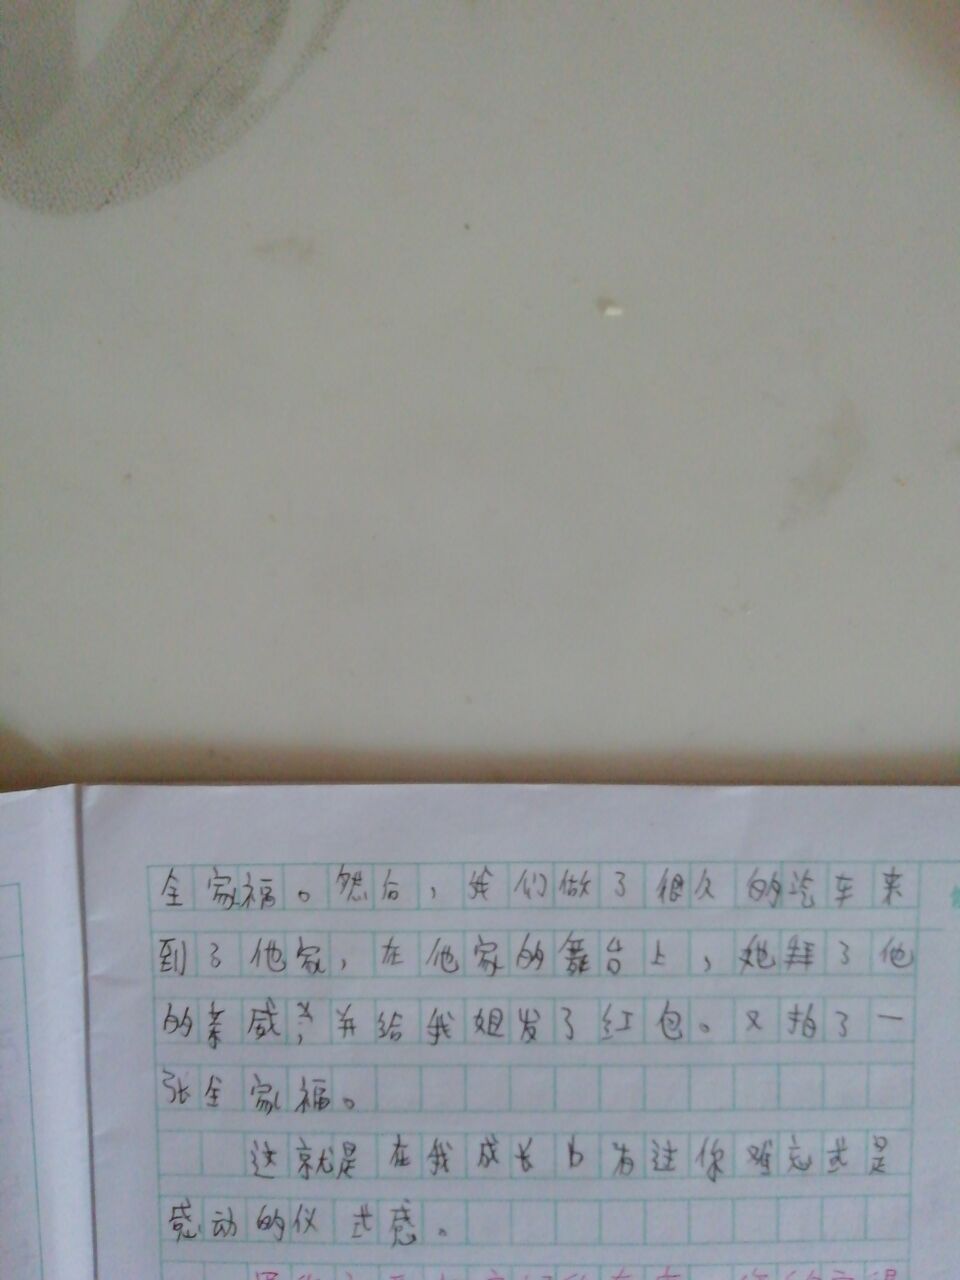 全家福。然后，我们做了很久的汽车来
到了他家，在他家的舞台上，她拜了他
的亲戚，并给我姐发了红包。又拍了一
张全家福。
这就是在我成长中 难忘 是
感动的仪式感。